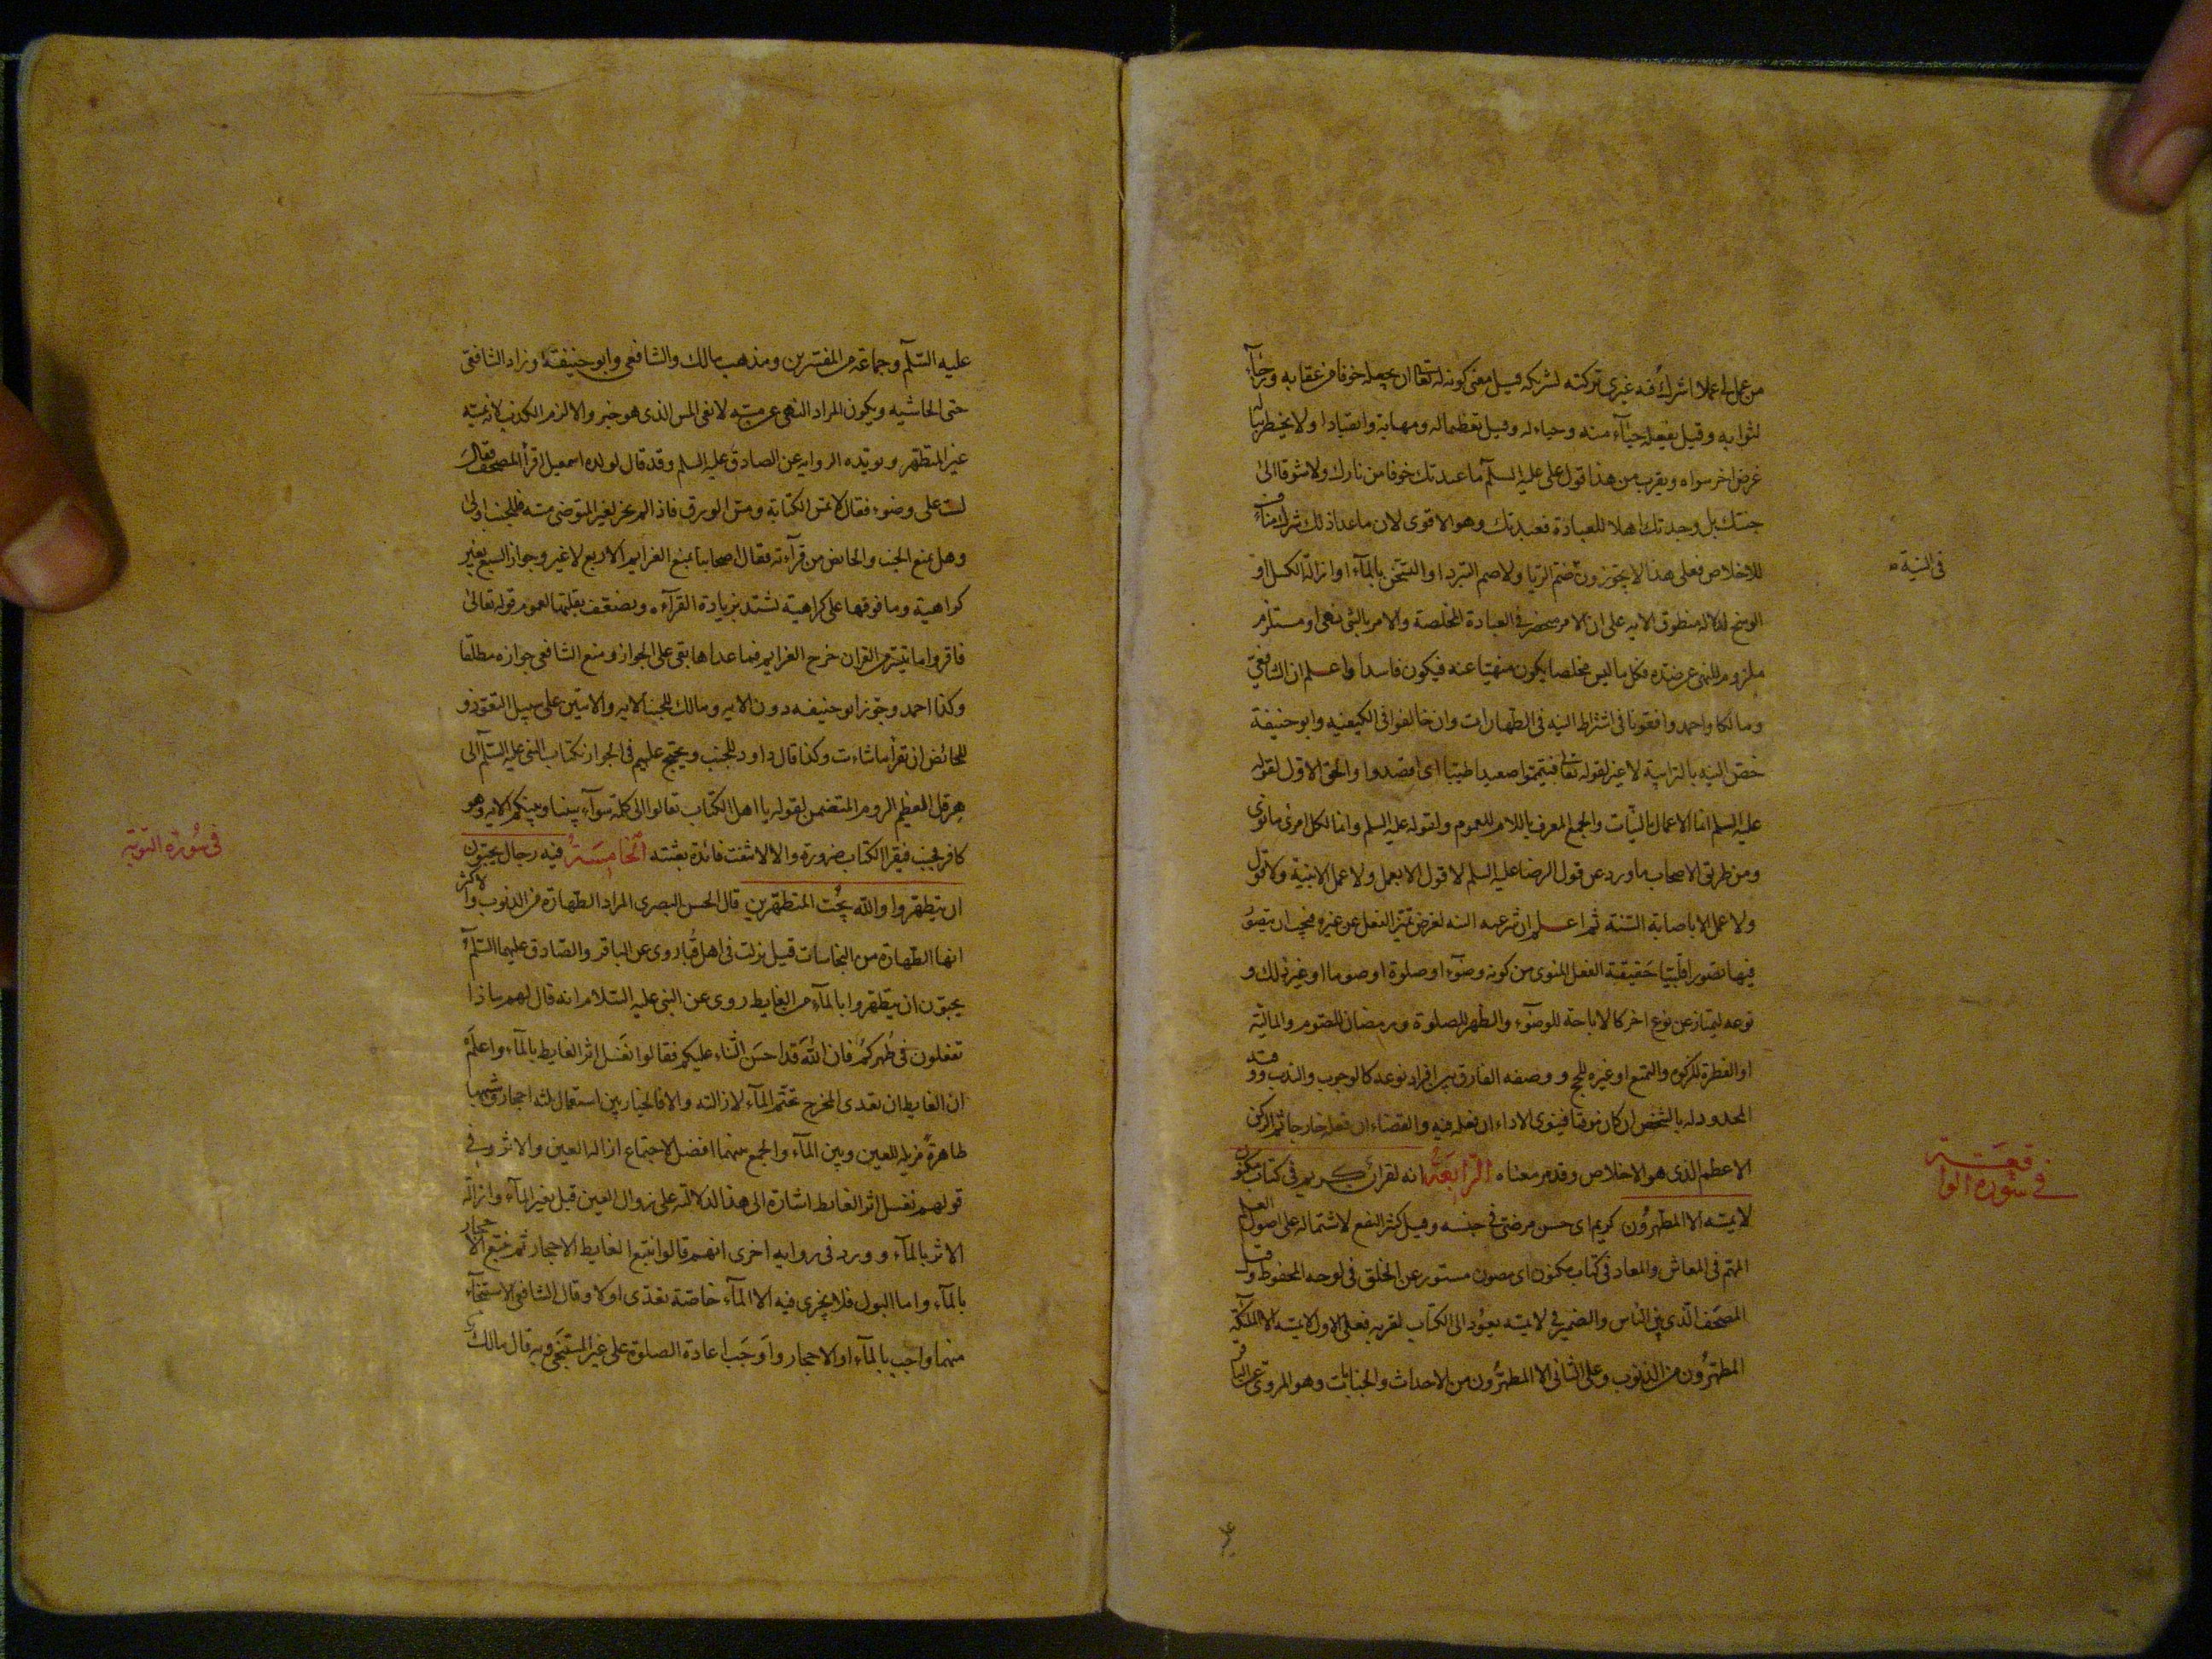 من عمل لى عملا اشرك فيه غيرى تركته لشريكه قيل معنى كونه له تعالى ان يجعله خوفا من عقابه ورجاء
لثوابه وقيل يفعله حياء منه وحياء له وقيل تعظيما له ومهابة وانقيادا ولا يخطر بباله
غرض اخر سواه ويقرب من هذا قول على عليه السلم ما عبدتك خوفا من نارك ولا شوقا الى
جنتك بل وجدتك اهلا للعبادة فعبدتك وهو الاقوى لان ما عدا ذلك شرك مناف
للاخلاص فعلى هذا لا يجوزون ضم الريا ولا ضم التبرد او التسخن بالمآء او ازالة الكسل او
الوسخ لدلالة منطوق الايه على ان الامر منحصر فى العبادة المخلصة والامر بالشى نهى او مستلزم
ملزوم للنهى عن ضده فكل ما ليس مخلصا يكون منهيا عنه فيكون فاسدا واعلم ان الشافعى
ومالكا واحمد وافقونا فى اشتراط النيه فى الطهارات وان خالفوا فى الكيفيه وابو حنيفة
خص النيه بالترابية لا غير لقوله تعالى فتيمموا صعيدا طيبا اى اقصدوا والحق الاول لقوله
عليه السلم انما الاعمال بالنيات والجمع المعرف باللام للعموم ولقوله عليه السلم وانما لكل امرئ ما نوى
ومن طريق الاصحاب ما ورد عن قول الرضا عليه السلم لا قول الا بعمل ولا عمل الا بنية ولا قول
ولا عمل الا باصابة السنة ثم اعلم ان شرعيه النيه لغرض تميز الفعل عن غيره فيجب ان يتصور
فيها تصورا قلبيا حقيقة الفعل المنوى من كونه وضوء او صلوة او صوما او غير ذلك و
نوعه ليمتاز عن نوع اخر كالاباحة للوضوء والظهر للصلوة ورمضان للصوم والمالية
او الفطرة للزكوه والتمتع او غيره للحج ووصفه الفارق بين افراد نوعه كالوجوب والندب ووقته
المحدود له بالشخص ان كان موقتا فينوى الاداء ان فعله فيه والقضاء ان فعله خارجا ثم الركن
الاعظم الذى هو الاخلاص وقد مر معناه الرابعة انه لقران كريم فى كتاب مكنون
لا يمسه الا المطهرون كريم اى حسن مرضى فى جنسه وقيل كثير النفع لاشتماله على اصول العلم
المهم فى المعاش والمعاد فى كتاب مكنون اى مصون مستور عن الخلق فى لوحه المحفوظ وقيل
المصحف الذى بين الناس والضمير فى لا يمسه يعود الى الكتاب لقربه فعلى الاول لا يمسه الا الملئكة
المطهرون من الذنوب وعلى الثانى الا المطهرون من الاحداث والجنابات وهو المروى عن الباقر
فى النية
فى سورة الواقعة
عليه السلم وجماعة من المفسرين ومذهب مالك والشافعى وابو حنيفة وزاد الشافعى
حتى الحاشيه ويكون المراد النهى عن مسه لا نفى المس الذى هو خبر والا لزم الكذب لانه يمسه
غير المتطهر ويؤيده الروايه عن الصادق عليه السلم وقد قال لولده اسمعيل اقرأ المصحف فقال
لست على وضوء فقال لا تمس الكتابة ومس الورق فاذا لم يجز لغير المتوضى مسه فللجنب اولى
وهل يمنع الجنب والحائض من قراءته فقال اصحابنا يمنع العزايم الاربع لا غير وجواز السبع بغير
كراهية وما فوقها على كراهية تشتد بزيادة القرآءه ويضعف بقلتها لعموم قوله تعالى
فاقروا ما تيسر من القران خرج العزايم فما عداها يبقى على الجواز ومنع الشافعى جوازه مطلقا
وكذا احمد وجوز ابو حنيفه دون الايه ومالك للجنب الايه والايتين على سبيل التعوذ و
للحائض ان تقرأ ما شاءت وكذا قال داود للجنب ويحتج عليهم فى الجواز بكتاب النبى عليه السلم الى
هرقل المعظم الروم المتضمن لقوله يا اهل الكتاب تعالوا الى كلمة سوآء بيننا وبينكم الايه وهو
كافر جنب فيقرا الكتاب ضرورة والا لانتفت فائدة بعثته الخامسة فيه رجال يحبون
ان يتطهروا والله يحب المتطهرين قال الحسن البصرى المراد الطهارة من الذنوب والاكثر
انها الطهارة من النجاسات قيل نزلت فى اهل قبا روى عن الباقر والصادق عليهما السلم
يحبون ان يتطهروا بالمآء من الغايط روى عن النبى عليه السلام انه قال لهم ماذا
تفعلون فى طهركم فان الله قد احسن الثناء عليكم فقالوا نغسل اثر الغايط بالمآء واعلم
ان الغايط ان تعدى المخرج تحتم المآء لازالته والا فالخيار بين استعمال ثلثه احجار وشبهها
طاهرة مزيله للعين وبين المآء والجمع بينهما افضل لاجتماع ازاله العين والاثر وفى
قولهم نغسل اثر الغايط اشارة الى هذا لدلالته على زوال العين قبل بغير المآء وازالة
الاثر بالمآء وورد فى روايه اخرى انهم قالوا نتبع الغايط الاحجار ثم نتبع الاحجار
بالمآء واما البول فلا يجزى فيه الا المآء خاصة تعدى او لا وقال الشافعى الاستنجآء
منهما واجب بالمآء او الاحجار واوجب اعادة الصلوة على غير المستنجى وبه قال مالك
فى سورة التوبة